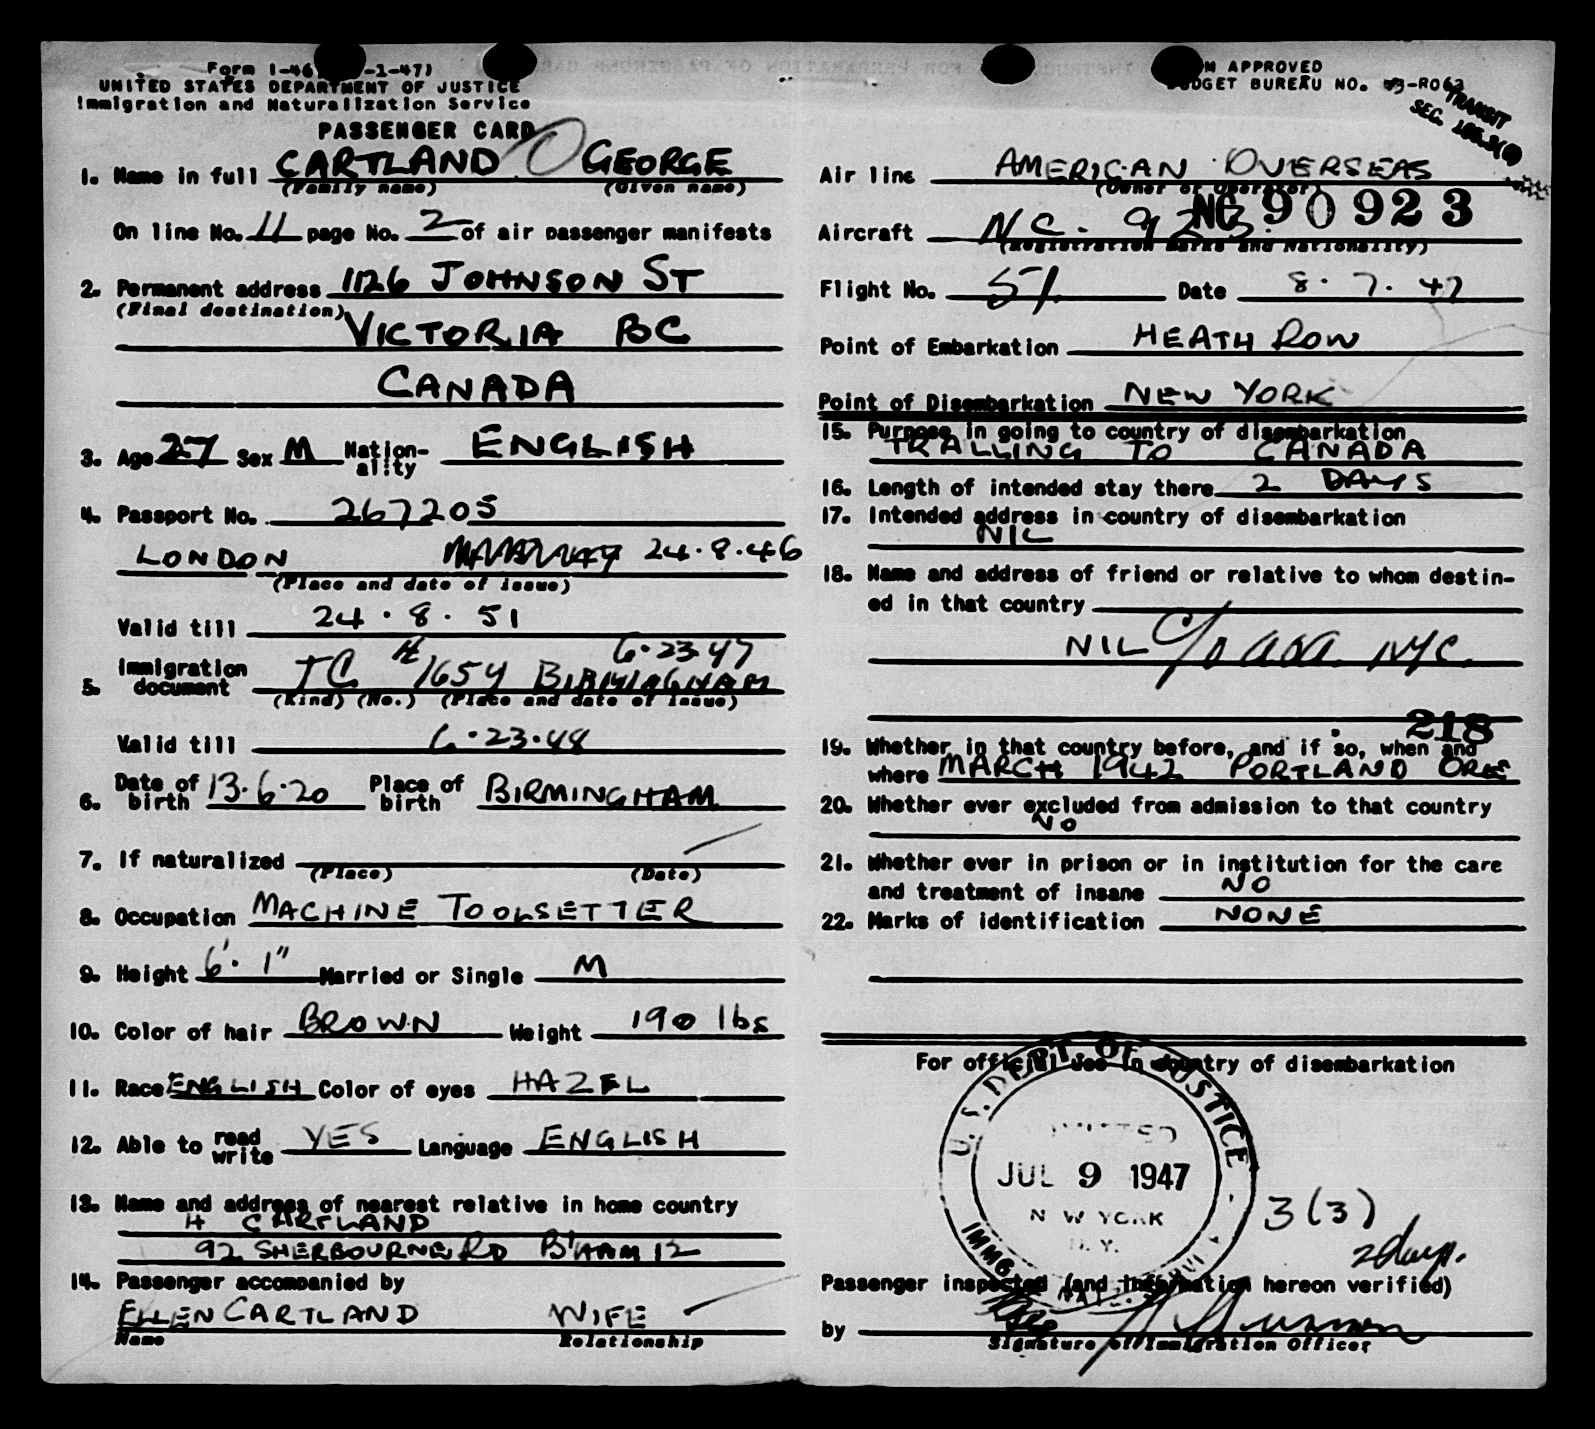 Form I-46 -1-47)
UNITED STATES DEPARTMENT OF JUSTICE
Immigration and Naturalization Service
PASSENGER CARD
1. Name in full CARTLAND GEORGE
(Family name) (Given name)
On line No. 11 page No. 2 of air passenger manifests
2. Permanent address 1126 JOHNSON ST
(Final destination)
VICTORIA BC
CANADA
3. Age 27 Sex M Nation-ality ENGLISH
4. Passport No. 267205
LONDON 24.8.46
(Place and date of issue)
Valid till 24.8.51
6.23.47
5. Immigration document TC 1654 BIRMINGHAM
(Kind) (No.) (Place and date of issue)
Valid till 6.23.48
6. Date of birth 13.6.20 Place of birth BIRMINGHAM
7. If naturalized
(Place) (Date)
8. Occupation MACHINE TOOLSETTER
9. Height 6'. 1" Married or Single M
10. Color of hair BROWN Weight 190 lbs
11. Race ENGLISH Color of eyes HAZEL
12. Able to read write YES Language ENGLISH
13. Name and address of nearest relative in home country
H CARTLAND
92 SHERBOURNE RD B'HAM 12
14. Passenger accompanied by
ELLEN CARTLAND WIFE
Name Relationship
M APPROVED
BUDGET BUREAU NO. 43-R062
TRANSIT
SEC.
Air line AMERICAN OVERSEAS
(Owner or Operator)
NC 90923
Aircraft N.C. 923.
(Registration marks and Nationality)
Flight No. 51 Date 8.7.47
Point of Embarkation HEATH ROW
Point of Disembarkation NEW YORK
15. Purpose in going to country of disembarkation
TRALLING TO CANADA
16. Length of intended stay there 2 DAYS
17. Intended address in country of disembarkation
NIL
18. Name and address of friend or relative to whom destin-
ed in that country
NIL C/o AOA. NYC.
218
19. Whether in that country before, and if so, when and
where MARCH 1942 PORTLAND ORE
20. Whether ever excluded from admission to that country
NO
21. Whether ever in prison or in institution for the care
and treatment of insane NO
22. Marks of identification NONE
For official use in country of disembarkation
U.S. DEPT OF JUSTICE
ADMITTED
JUL 9 1947
NEW YORK
N.Y.
IMMG
3(3)
2 days.
Passenger inspected (and information hereon verified)
by
Signature of Immigration Officer